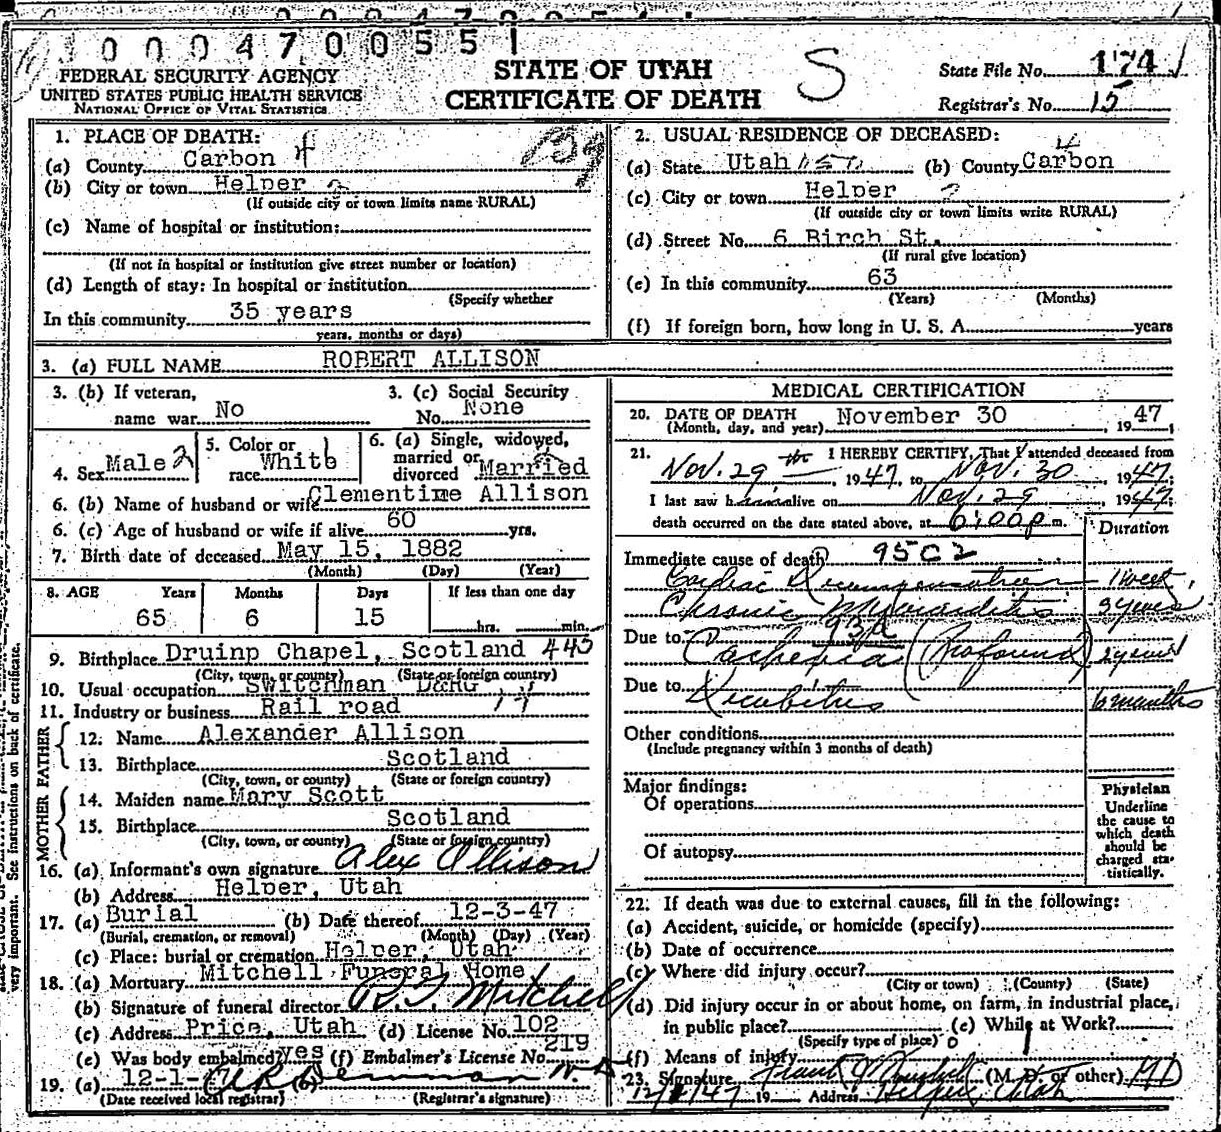 0004700551
FEDERAL SECURITY AGENCY
UNITED STATES PUBLIC HEALTH SERVICE
NATIONAL OFFICE OF VITAL STATISTICS
STATE OF UTAH
CERTIFICATE OF DEATH
S
State File No. 174
Registrar's No. 15
1. PLACE OF DEATH:
(a) County Carbon 4
(b) City or town Helper 2
(If outside city or town limits name RURAL)
(c) Name of hospital or institution:
(If not in hospital or institution give street number or location)
(d) Length of stay: In hospital or institution
(Specify whether
In this community 35 years
years, months or days)
2. USUAL RESIDENCE OF DECEASED:
4
(a) State Utah (b) County Carbon
(c) City or town Helper 2
(If outside city or town limits write RURAL)
(d) Street No. 6 Birch St.
(If rural give location)
(e) In this community 63
(Years) (Months)
(f) If foreign born, how long in U. S. A. years
3. (a) FULL NAME ROBERT ALLISON
3. (b) If veteran,
name war No
3. (c) Social Security
No. None
4. Sex Male 2
5. Color or
race White 1
6. (a) Single, widowed,
married or
divorced Married
6. (b) Name of husband or wife Clementine Allison
6. (c) Age of husband or wife if alive 60 yrs.
7. Birth date of deceased May 15, 1882
(Month) (Day) (Year)
8. AGE Years Months Days If less than one day
65 6 15 hrs. min.
9. Birthplace Druinp Chapel, Scotland 445
(City, town, or county) (State or foreign country)
10. Usual occupation Switchman D&RG
11. Industry or business Rail road
FATHER
12. Name Alexander Allison
13. Birthplace Scotland
(City, town, or county) (State or foreign country)
MOTHER
14. Maiden name Mary Scott
15. Birthplace Scotland
(City, town, or county) (State or foreign country)
16. (a) Informant's own signature Alex Allison
(b) Address Helper, Utah
17. (a) Burial (b) Date thereof 12-3-47
(Burial, cremation, or removal) (Month) (Day) (Year)
(c) Place: burial or cremation Helper, Utah
18. (a) Mortuary Mitchell Funeral Home
(b) Signature of funeral director R. T. Mitchell
(c) Address Price, Utah (d) License No. 102
(e) Was body embalmed? Yes (f) Embalmer's License No. 219
19. (a) 12-1-47 (b)
(Date received local registrar) (Registrar's signature)
MEDICAL CERTIFICATION
20. DATE OF DEATH
(Month, day, and year) November 30, 1947
21. I HEREBY CERTIFY, That I attended deceased from
Nov. 29th, 1947, to Nov. 30 1947;
I last saw him alive on Nov. 29 1947
death occurred on the date stated above, at 6:00 p. m.
Duration
Immediate cause of death 95C2
Cardiac Decompensation 1 week
Chronic Myocarditis years
93d
Due to Cachexia (Profound) 2 years
Due to Decubitus 6 months
Other conditions
(Include pregnancy within 3 months of death)
Major findings:
Of operations
Of autopsy
Physician
Underline
the cause to
which death
should be
charged sta-
tistically.
22. If death was due to external causes, fill in the following:
(a) Accident, suicide, or homicide (specify)
(b) Date of occurrence
(c) Where did injury occur?
(City or town) (County) (State)
(d) Did injury occur in or about home, on farm, in industrial place,
in public place? (e) While at Work?
(Specify type of place)
(f) Means of injury
23. Signature Frank (M. D. or other) MD
47 19 Address Helper Utah
very important. See instructions on back of certificate.